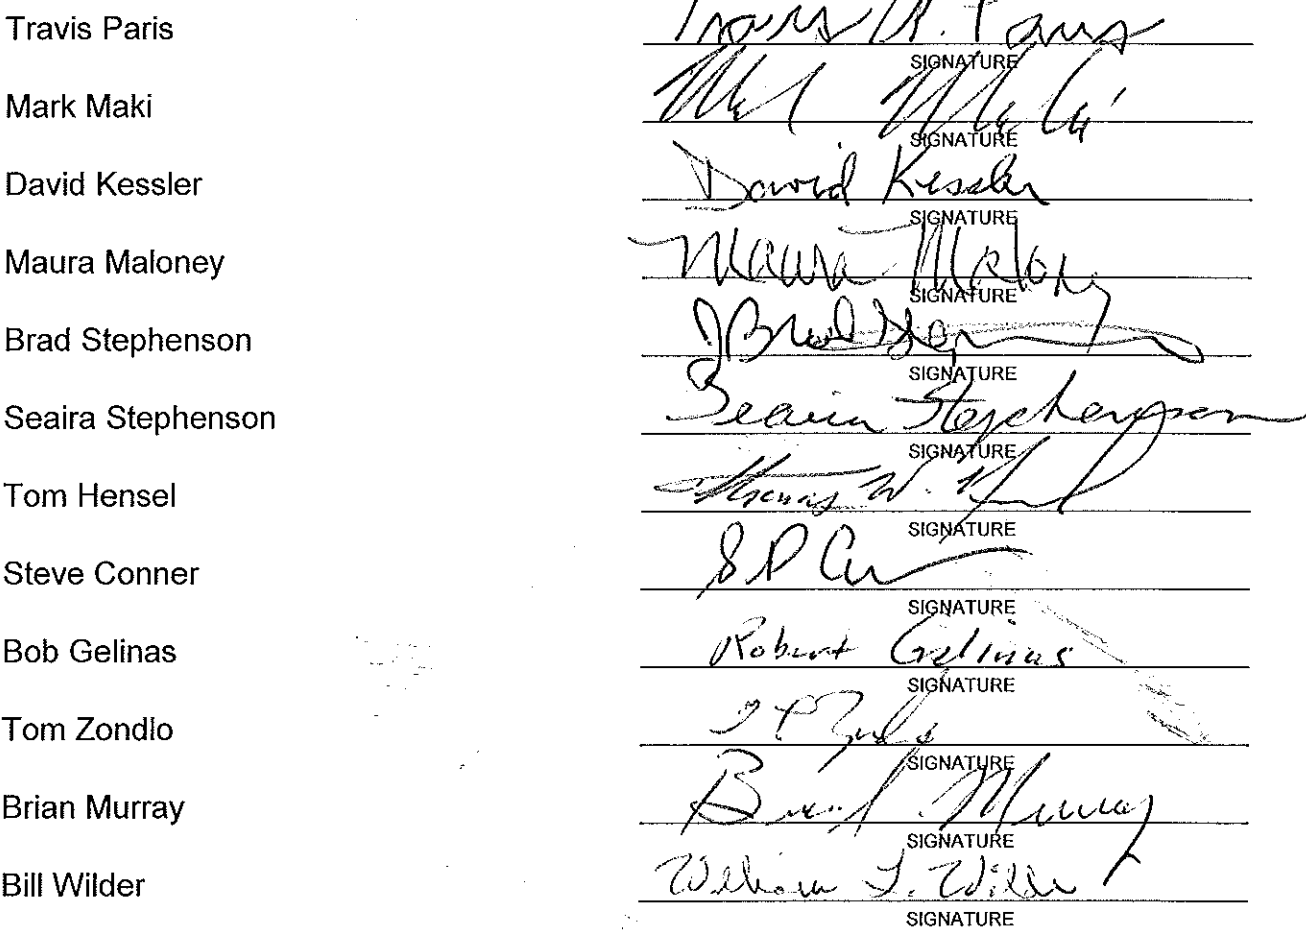 Travis Paris Travis R. Paris
SIGNATURE
Mark Maki Mark Maki
SIGNATURE
David Kessler David Kessler
SIGNATURE
Maura Maloney Maura Maloney
SIGNATURE
Brad Stephenson J Brad Stephenson
SIGNATURE
Seaira Stephenson Seaira Stephenson
SIGNATURE
Tom Hensel Thomas W. Hensel
SIGNATURE
Steve Conner S P Conner
SIGNATURE
Bob Gelinas Robert Gelinas
SIGNATURE
Tom Zondlo
SIGNATURE
Brian Murray Brian Murray
SIGNATURE
Bill Wilder William L. Wilder
SIGNATURE